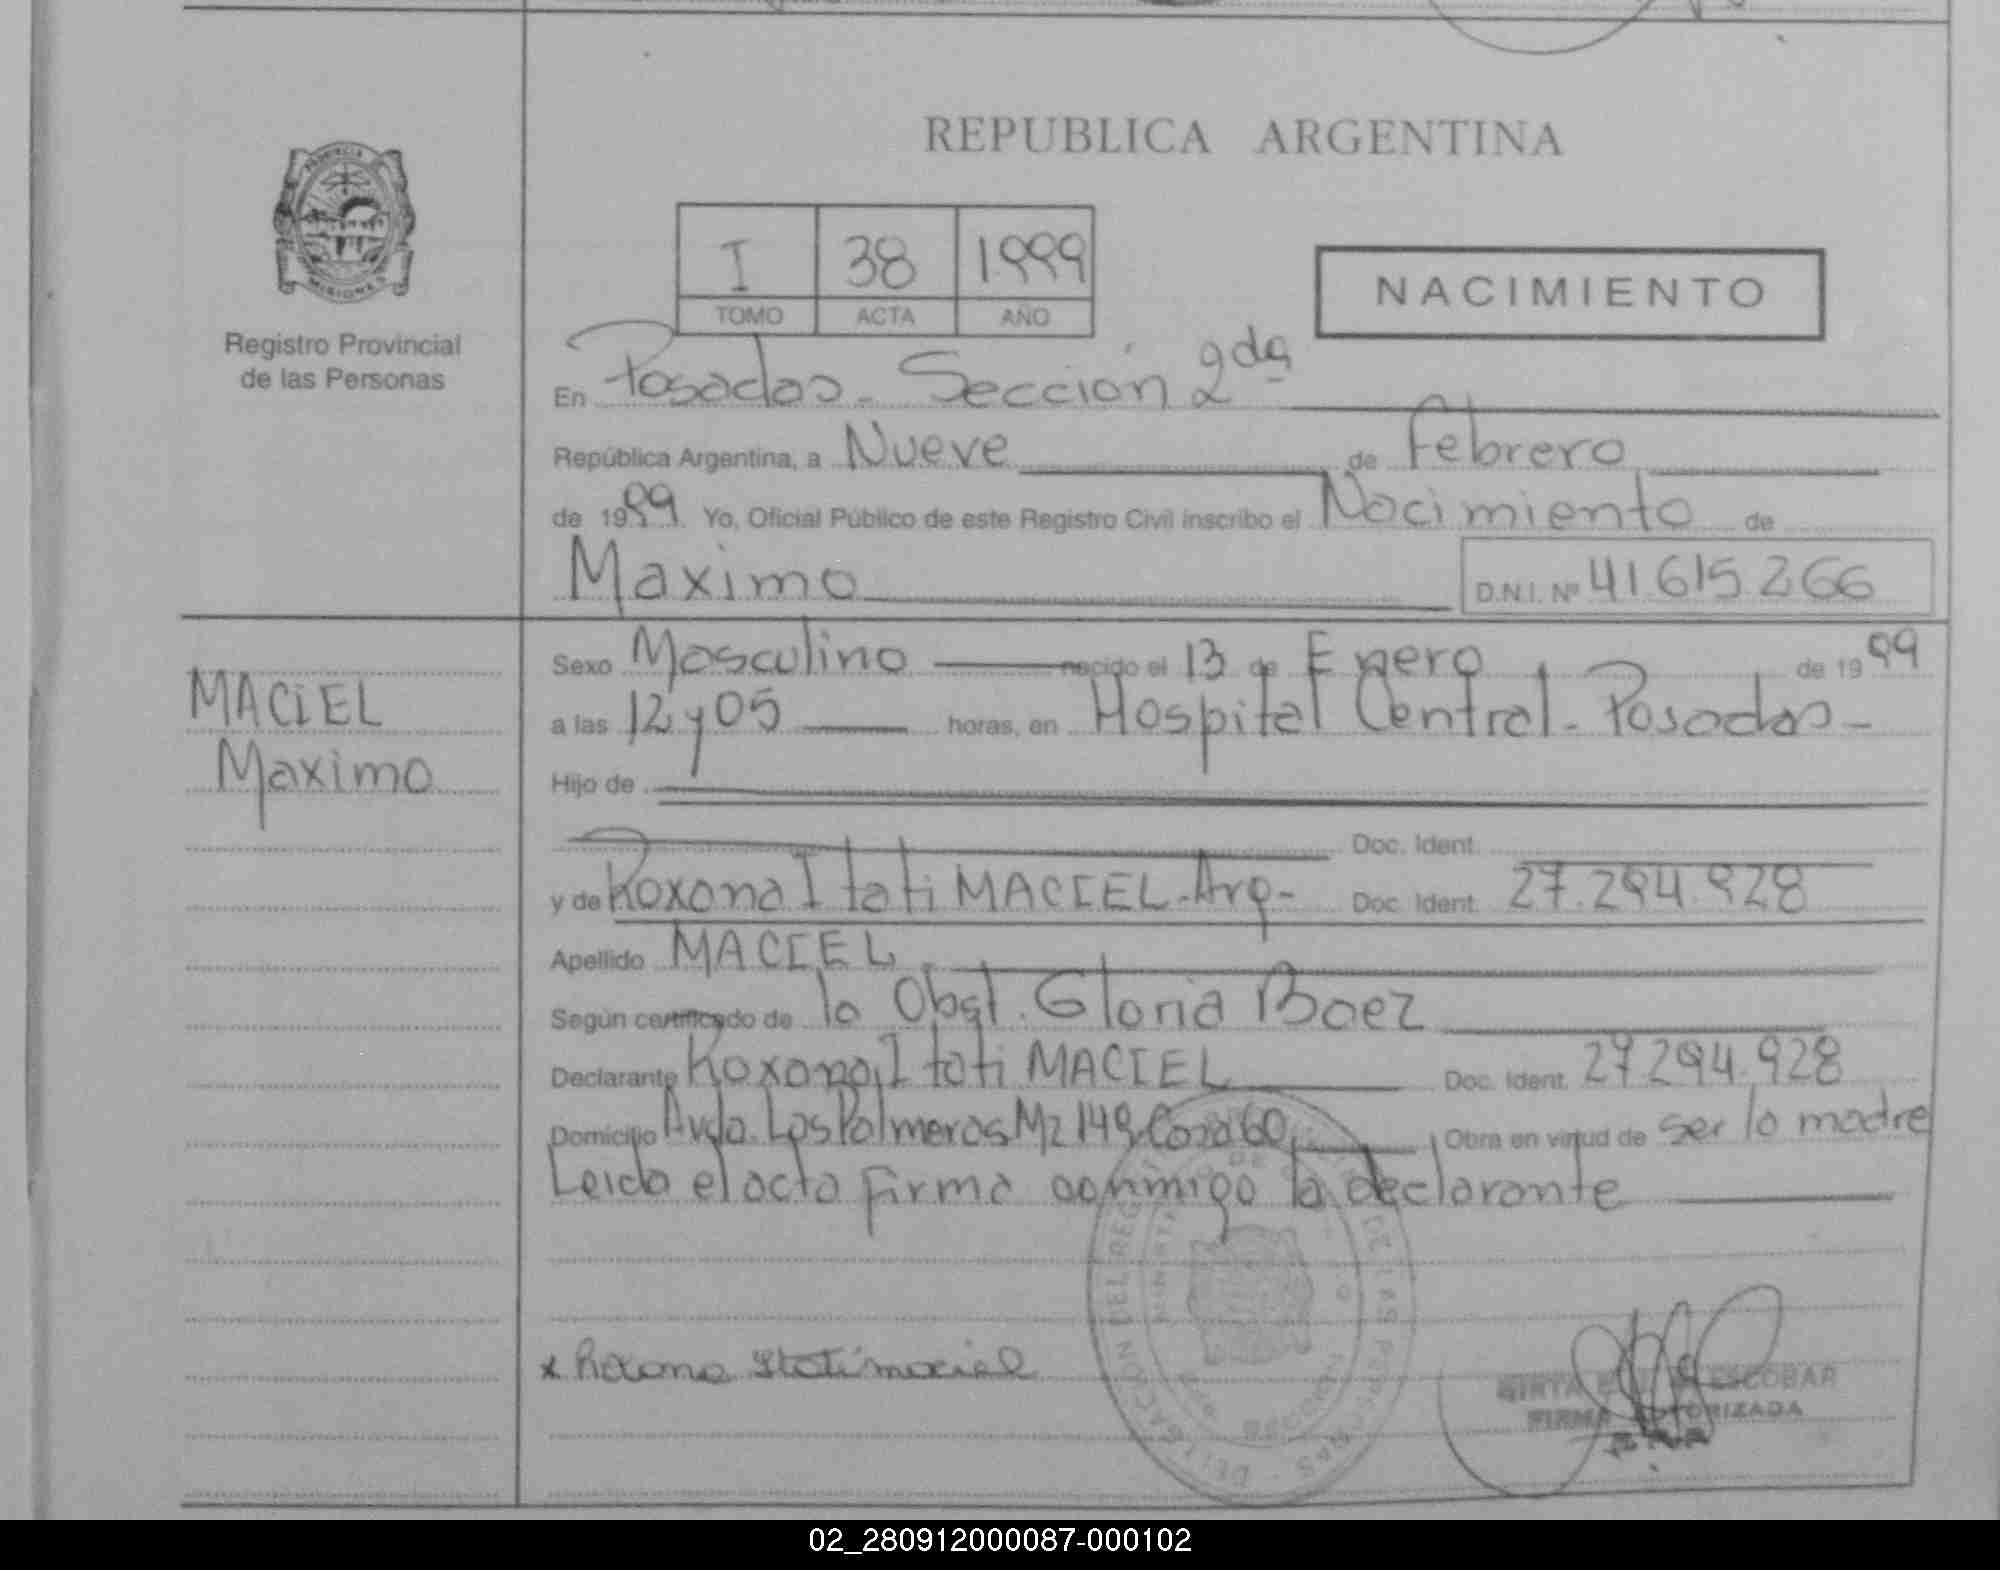 REPUBLICA ARGENTINA
PROVINCIA
MISIONES
Registro Provincial
de las Personas
I 38 1999
TOMO ACTA AÑO
NACIMIENTO
En Posadas - Sección 2da
República Argentina, a Nueve de Febrero
de 1999. Yo, Oficial Público de este Registro Civil inscribo el Nacimiento de
Maximo D.N.I. Nº 41.615.266
MACIEL
Maximo
Sexo Masculino nacido el 13 de Enero de 1999
a las 12 y 05 horas, en Hospital Central - Posadas -
Hijo de
Doc. Ident.
y de Roxana Itati MACIEL - Arg - Doc. Ident. 27.294.928
Apellido MACIEL
Según certificado de la Obst. Gloria Baez
Declarante Roxana Itati MACIEL Doc. Ident. 27.294.928
Domicilio Avda. Las Palmeras Mz 149 Casa 60 Obra en virtud de ser la madre
Leida el acta firma conmigo la declarante
DELEGACION DEL REGISTRO DE LAS PERSONAS
x Roxana Itati maciel
MIRTA ESCOBAR
FIRMA AUTORIZADA
02_280912000087-000102